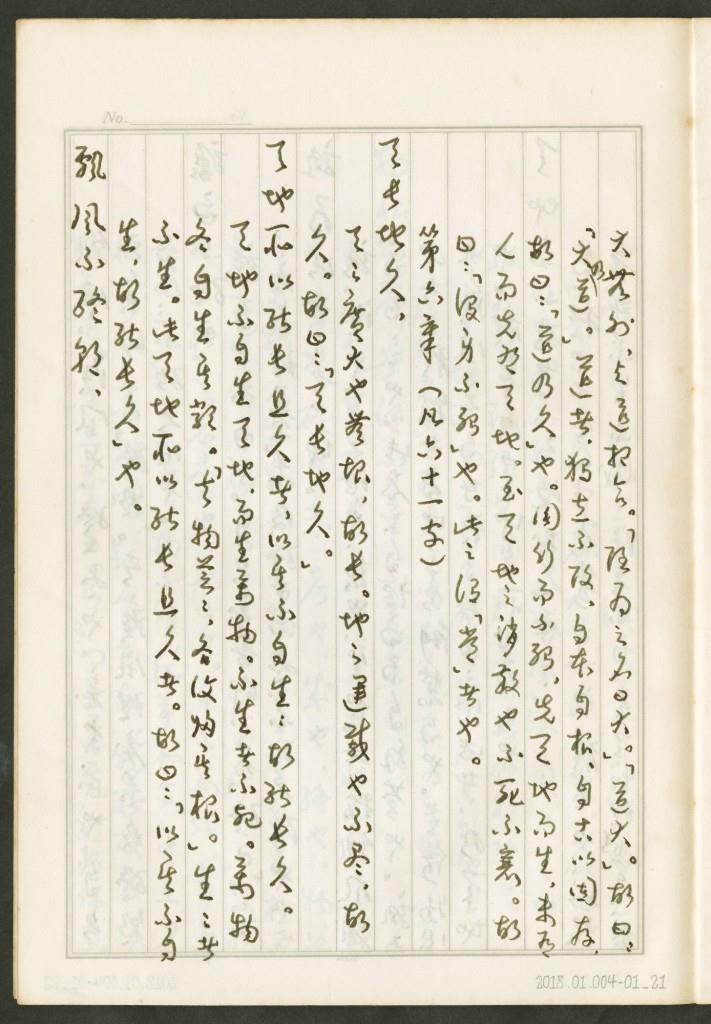 大無外、與道相合。「強為之名曰大。」「道大。」故曰:
「大道。」道者、獨立不改、自本自根、自古以固存、
故曰:「道乃久」也。周行而不殆、先天地而生、未有
人而先有天地。至天地之消散也不死不衰。故
曰:「沒身不殆」也。此之謂「常」者也。
第六章(凡六十一字)
天長地久、
天之廣大也無垠、故長。地之運載也不盡、故
久。故曰:「天長地久。」
天地所以能長且久者、以其不自生:故能長久。
天地不自生天地、而生萬物。不生者不死。萬物
各自生其類。「夫物芸:、各復歸其根。」生:者
不生。此天地所以能長且久者。故曰:「以其不自
生、故能長久」也。
飄風不終朝、
No.
2018.01.004-01_21